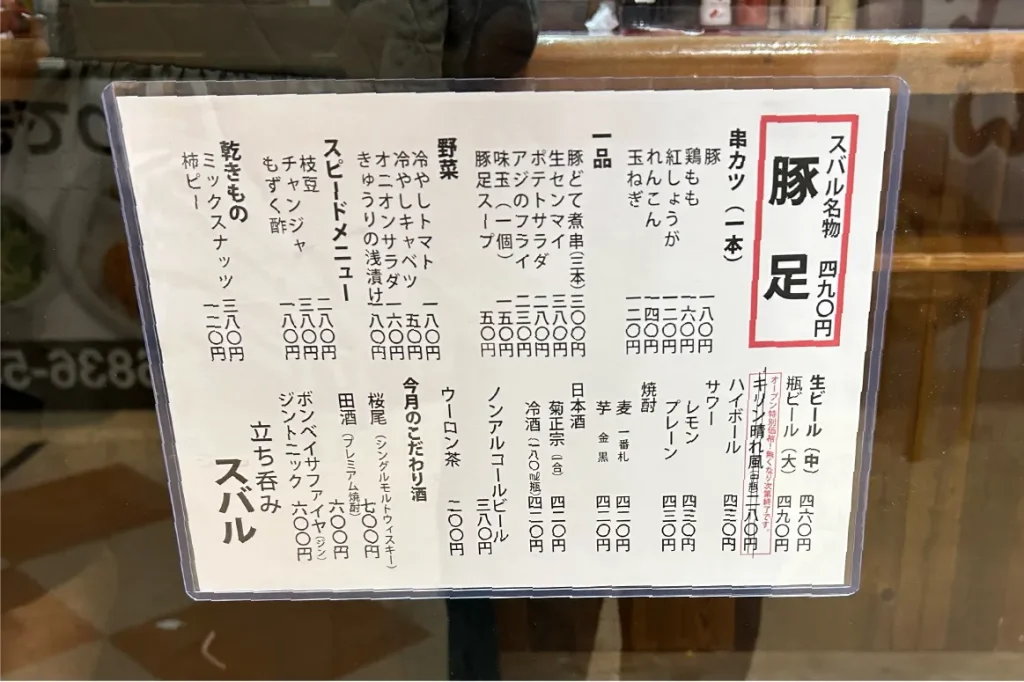 スバル名物 四九〇円
豚足
串カツ(一本)
豚 一八〇円
鶏もも 一六〇円
紅しょうが 一二〇円
れんこん 一四〇円
玉ねぎ 一二〇円
一品
豚どて煮串(三本) 三〇〇円
生センマイ 三八〇円
ポテトサラダ 二八〇円
アジのフライ 二三〇円
味玉(一個) 一五〇円
豚足スープ 五〇円
野菜
冷やしトマト 一八〇円
冷やしキャベツ 一五〇円
オニオンサラダ 一六〇円
きゅうりの浅漬け 一八〇円
スピードメニュー
枝豆 二八〇円
チャンジャ 三八〇円
もずく酢 一八〇円
乾きもの
ミックスナッツ 三八〇円
柿ピー 一二〇円
生ビール(中) 四六〇円
瓶ビール(大) 四九〇円
オープン特別価格!無くなり次第終了です。
キリン晴れ風(中瓶) 二八〇円
ハイボール 四三〇円
サワー
レモン 四三〇円
プレーン 四三〇円
焼酎
麦 一番札 四二〇円
芋 金黒 四二〇円
日本酒
菊正宗(一合) 四二〇円
冷酒(一八〇ml瓶) 四二〇円
ノンアルコールビール 三八〇円
ウーロン茶 二〇〇円
今月のこだわり酒
桜尾(シングルモルトウィスキー) 七〇〇円
田酒(プレミアム焼酎) 六〇〇円
ボンベイサファイヤ(ジン)
ジントニック 六〇〇円
立ち呑み
スバル
6836-5